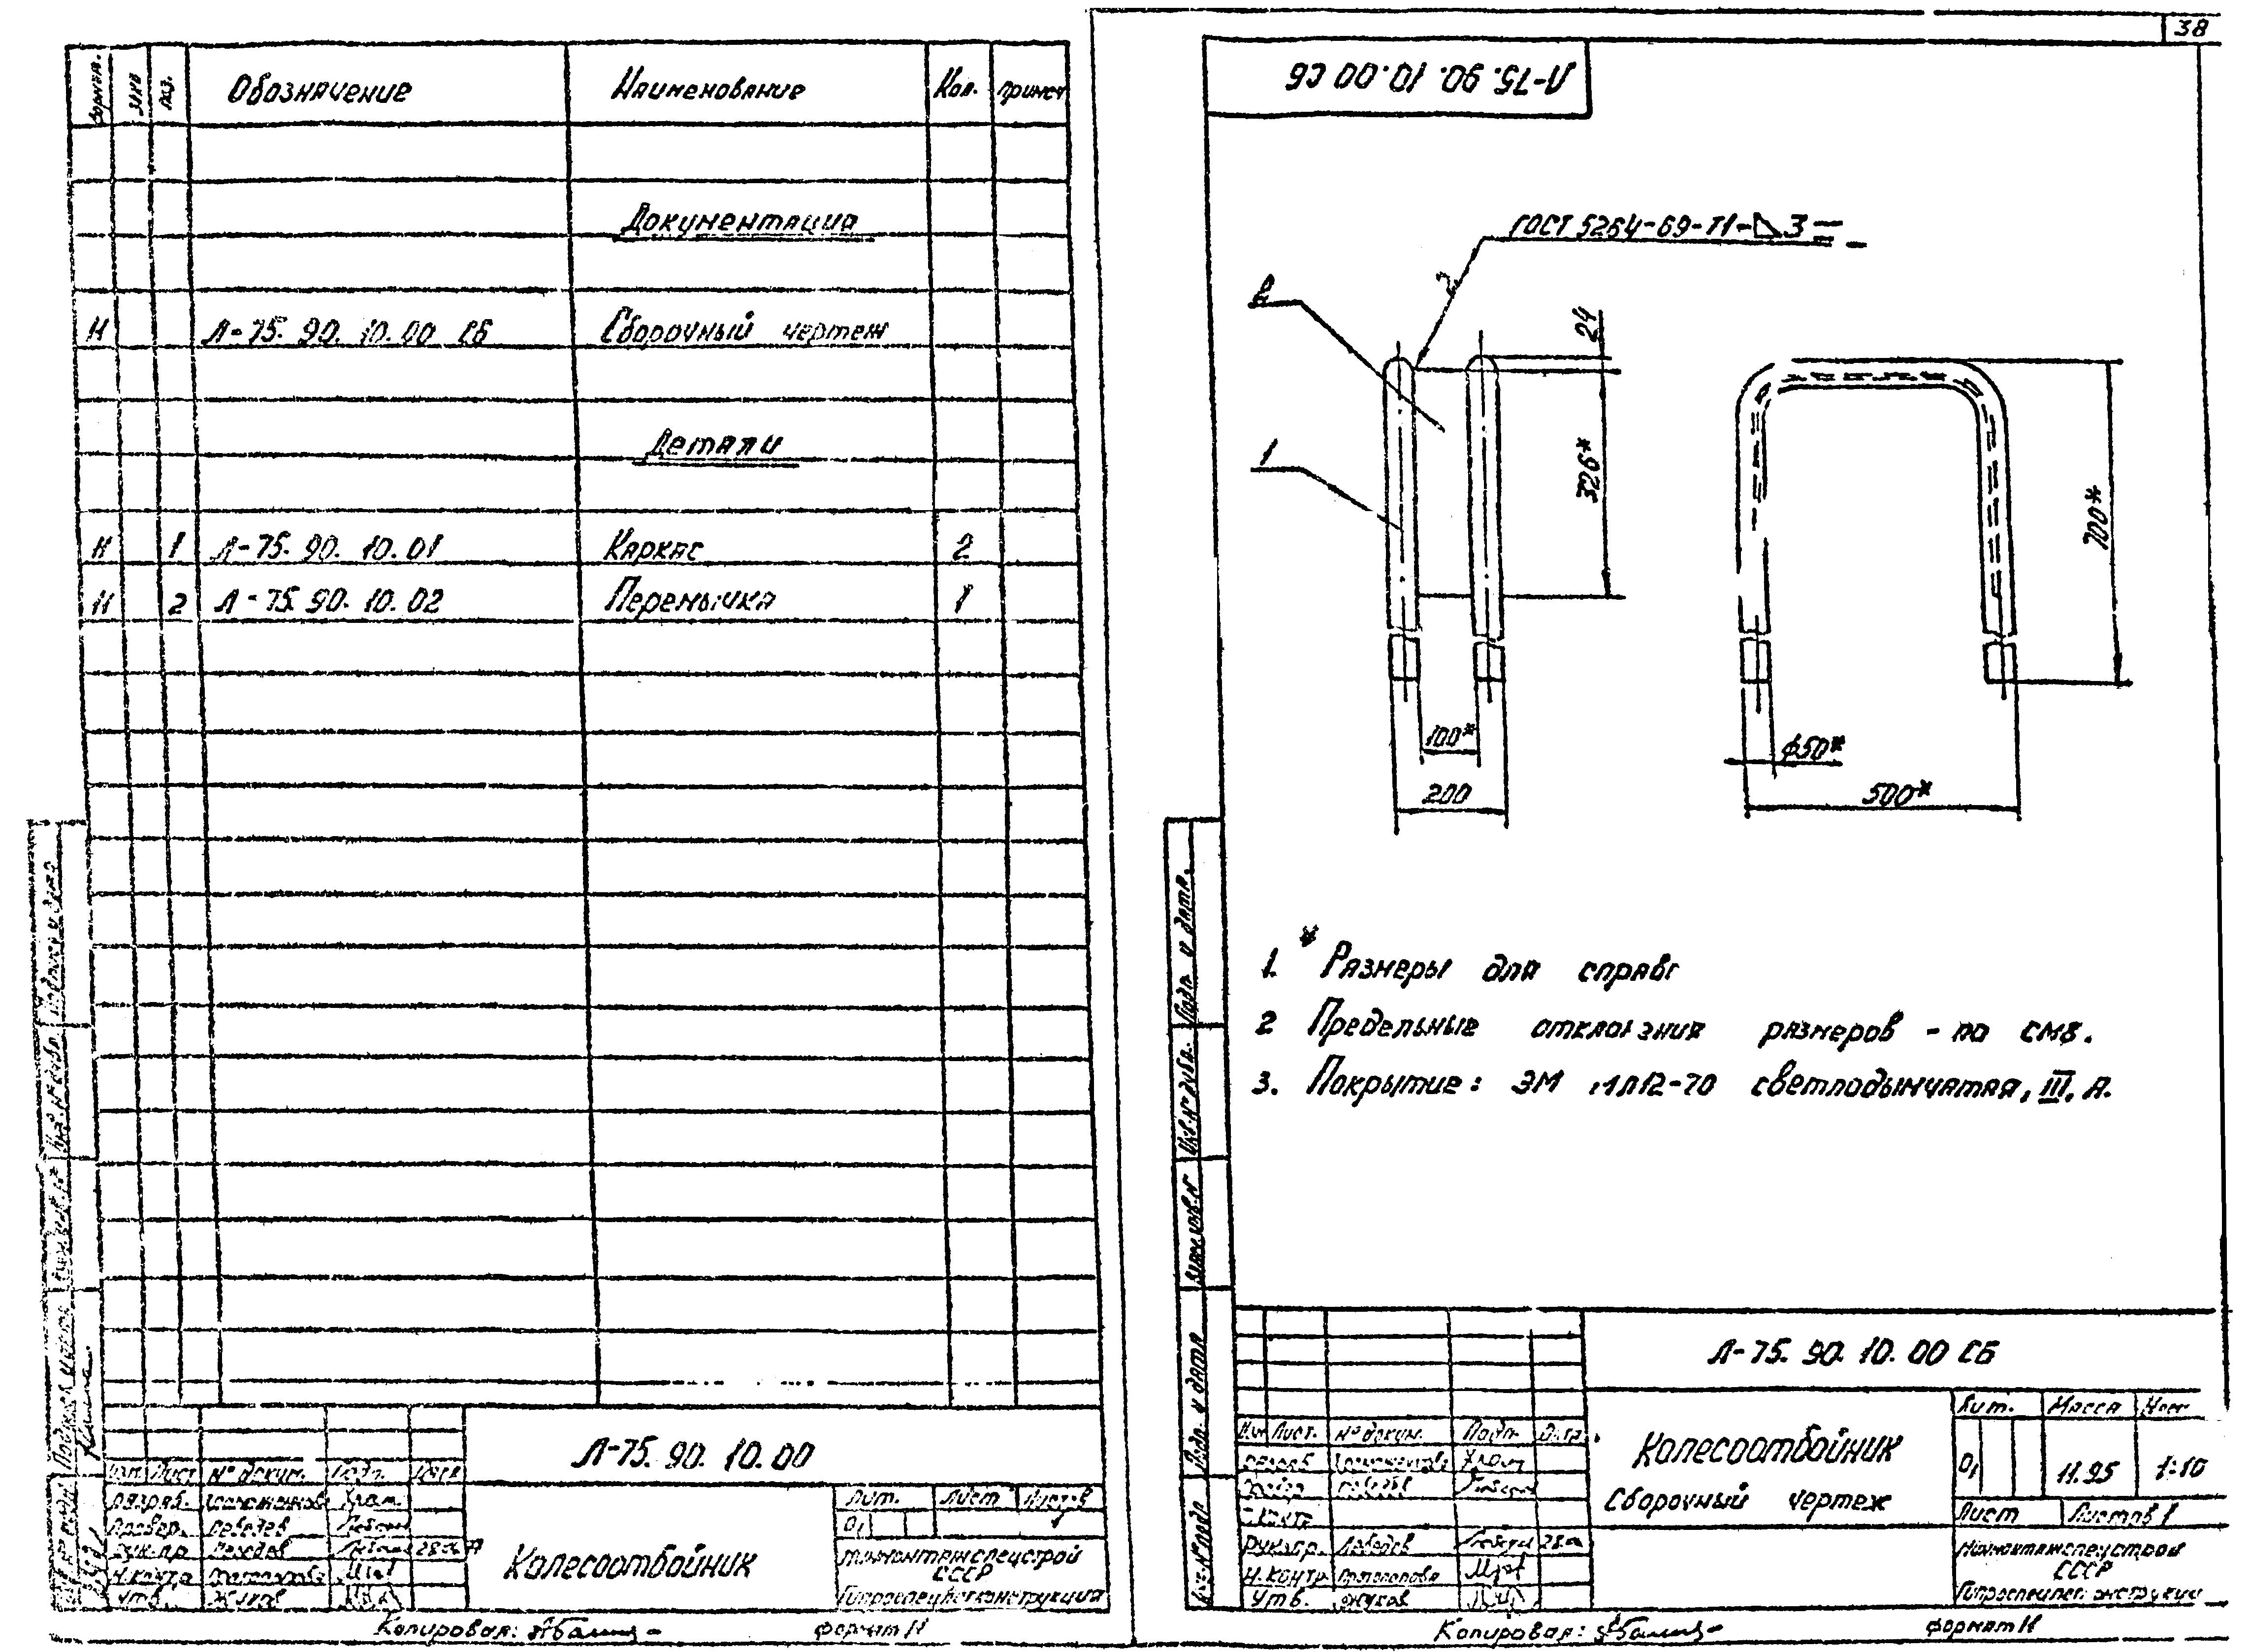 Обозначение Наименование Кол. Примеч
Документация
Н Л-75. 90. 10. 00 СБ Сборочный чертеж
Детали
Н 1 Л-75. 90. 10. 01 Каркас 2
Н 2 Л-75. 90. 10. 02 Перемычка 1
Л-75. 90. 10. 00
Изм Лист № докум. Подп.
Разраб.
Провер. Лебедев
Рук.пр Лебедев
Н.контр
Утв. Жуков
Колесоотбойник
Лит. Лист Листов
1
Минмонтажспецстрой
СССР
Гипроспецлегконструкция
Копировал:
формат 11
38
Л-75. 90. 10. 00 СБ
ГОСТ 5264-69-Т1-◺3
2
2
1
24
326*
700*
100*
200
ϕ50*
500*
1. * Размеры для справ
2 Предельные размеров - по см8.
3. Покрытие: ЭМ МЛ12-70 светлодымчатая, III, А.
Подп. и дата.
Инв.№дубл.
Взам.инв.№
Подп. и дата
Инв.№подл
Л-75. 90. 10. 00 СБ
Изм Лист. № докум. Подп. Дата
Разраб
Провер Лебедев
Т.контр
Рук.пр. Лебедев
Н.контр Протопопова
Утв. Жуков
Колесоотбойник
Сборочный чертеж
Лит. Масса
11.95 1:10
Лист Листов 1
Минмонтажспецстрой
СССР
Копировал:
формат 11